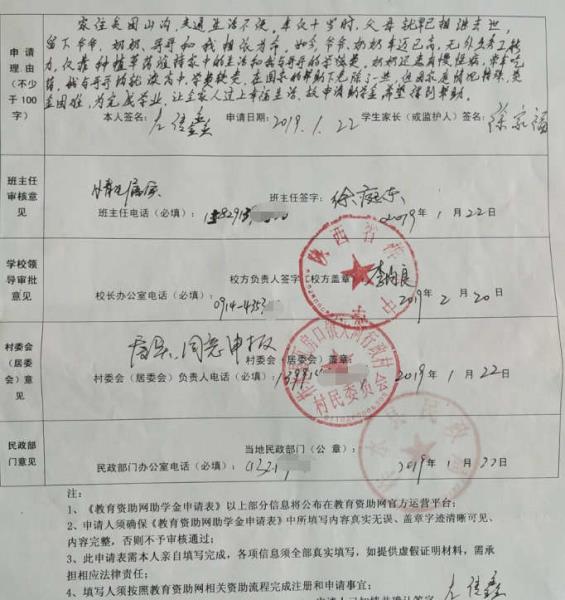 家住贫困山沟，交通生活不便。本人十岁时，父母就早已相继去世，
留下爷爷、奶奶、哥哥和我相依为命。如今爷爷、奶奶年迈已高，无外出务工能
力，仅靠种植
家中的生活和我与哥哥的学杂费。奶奶还患有慢性病，常年吃
药，我与哥哥均就读高中，学费较贵，在国家的帮助下免除了一些，但因家庭情况特殊，实
在困难，为完成学业，让全家人过上幸福生活，故申请助学金，希望得到帮助。
申请
理由
（不少
于 100
字）
本人签名：
申请日期：2019.1.22
学生家长（或监护人）签名：徐家福
班主任
审核意
见
情况属实
班主任签字：徐庭东
班主任电话（必填）：
2019年 1月 22日
学校领
导审批
意见
校方负责人签字（校方盖章）
校长办公室电话（必填）：0914-435
2019年 2月 20日
村委会
（居委
会）意
见
属实、同意申报
村委会（居委会）盖章：
村委会（居委会）负责人电话（必填）：
2019年 1月 22日
村民委员会
民政部
门意见
当地民政部门（公 章）：
民政部门办公室电话（必填）：
2019年 1月 22日
注：
1、《教育资助网助学金申请表》以上部分信息将公布在教育资助网官方运营平台；
2、申请人须确保《教育资助网助学金申请表》中所填写内容真实无误、盖章字迹清晰可见、
内容完整，否则不予审核通过；
3、此申请表需本人亲自填写完成，各项信息须全部真实填写，如提供虚假证明材料，需承
担相应法律责任；
4、填写人须按照教育资助网相关资助流程完成注册和申请事宜；